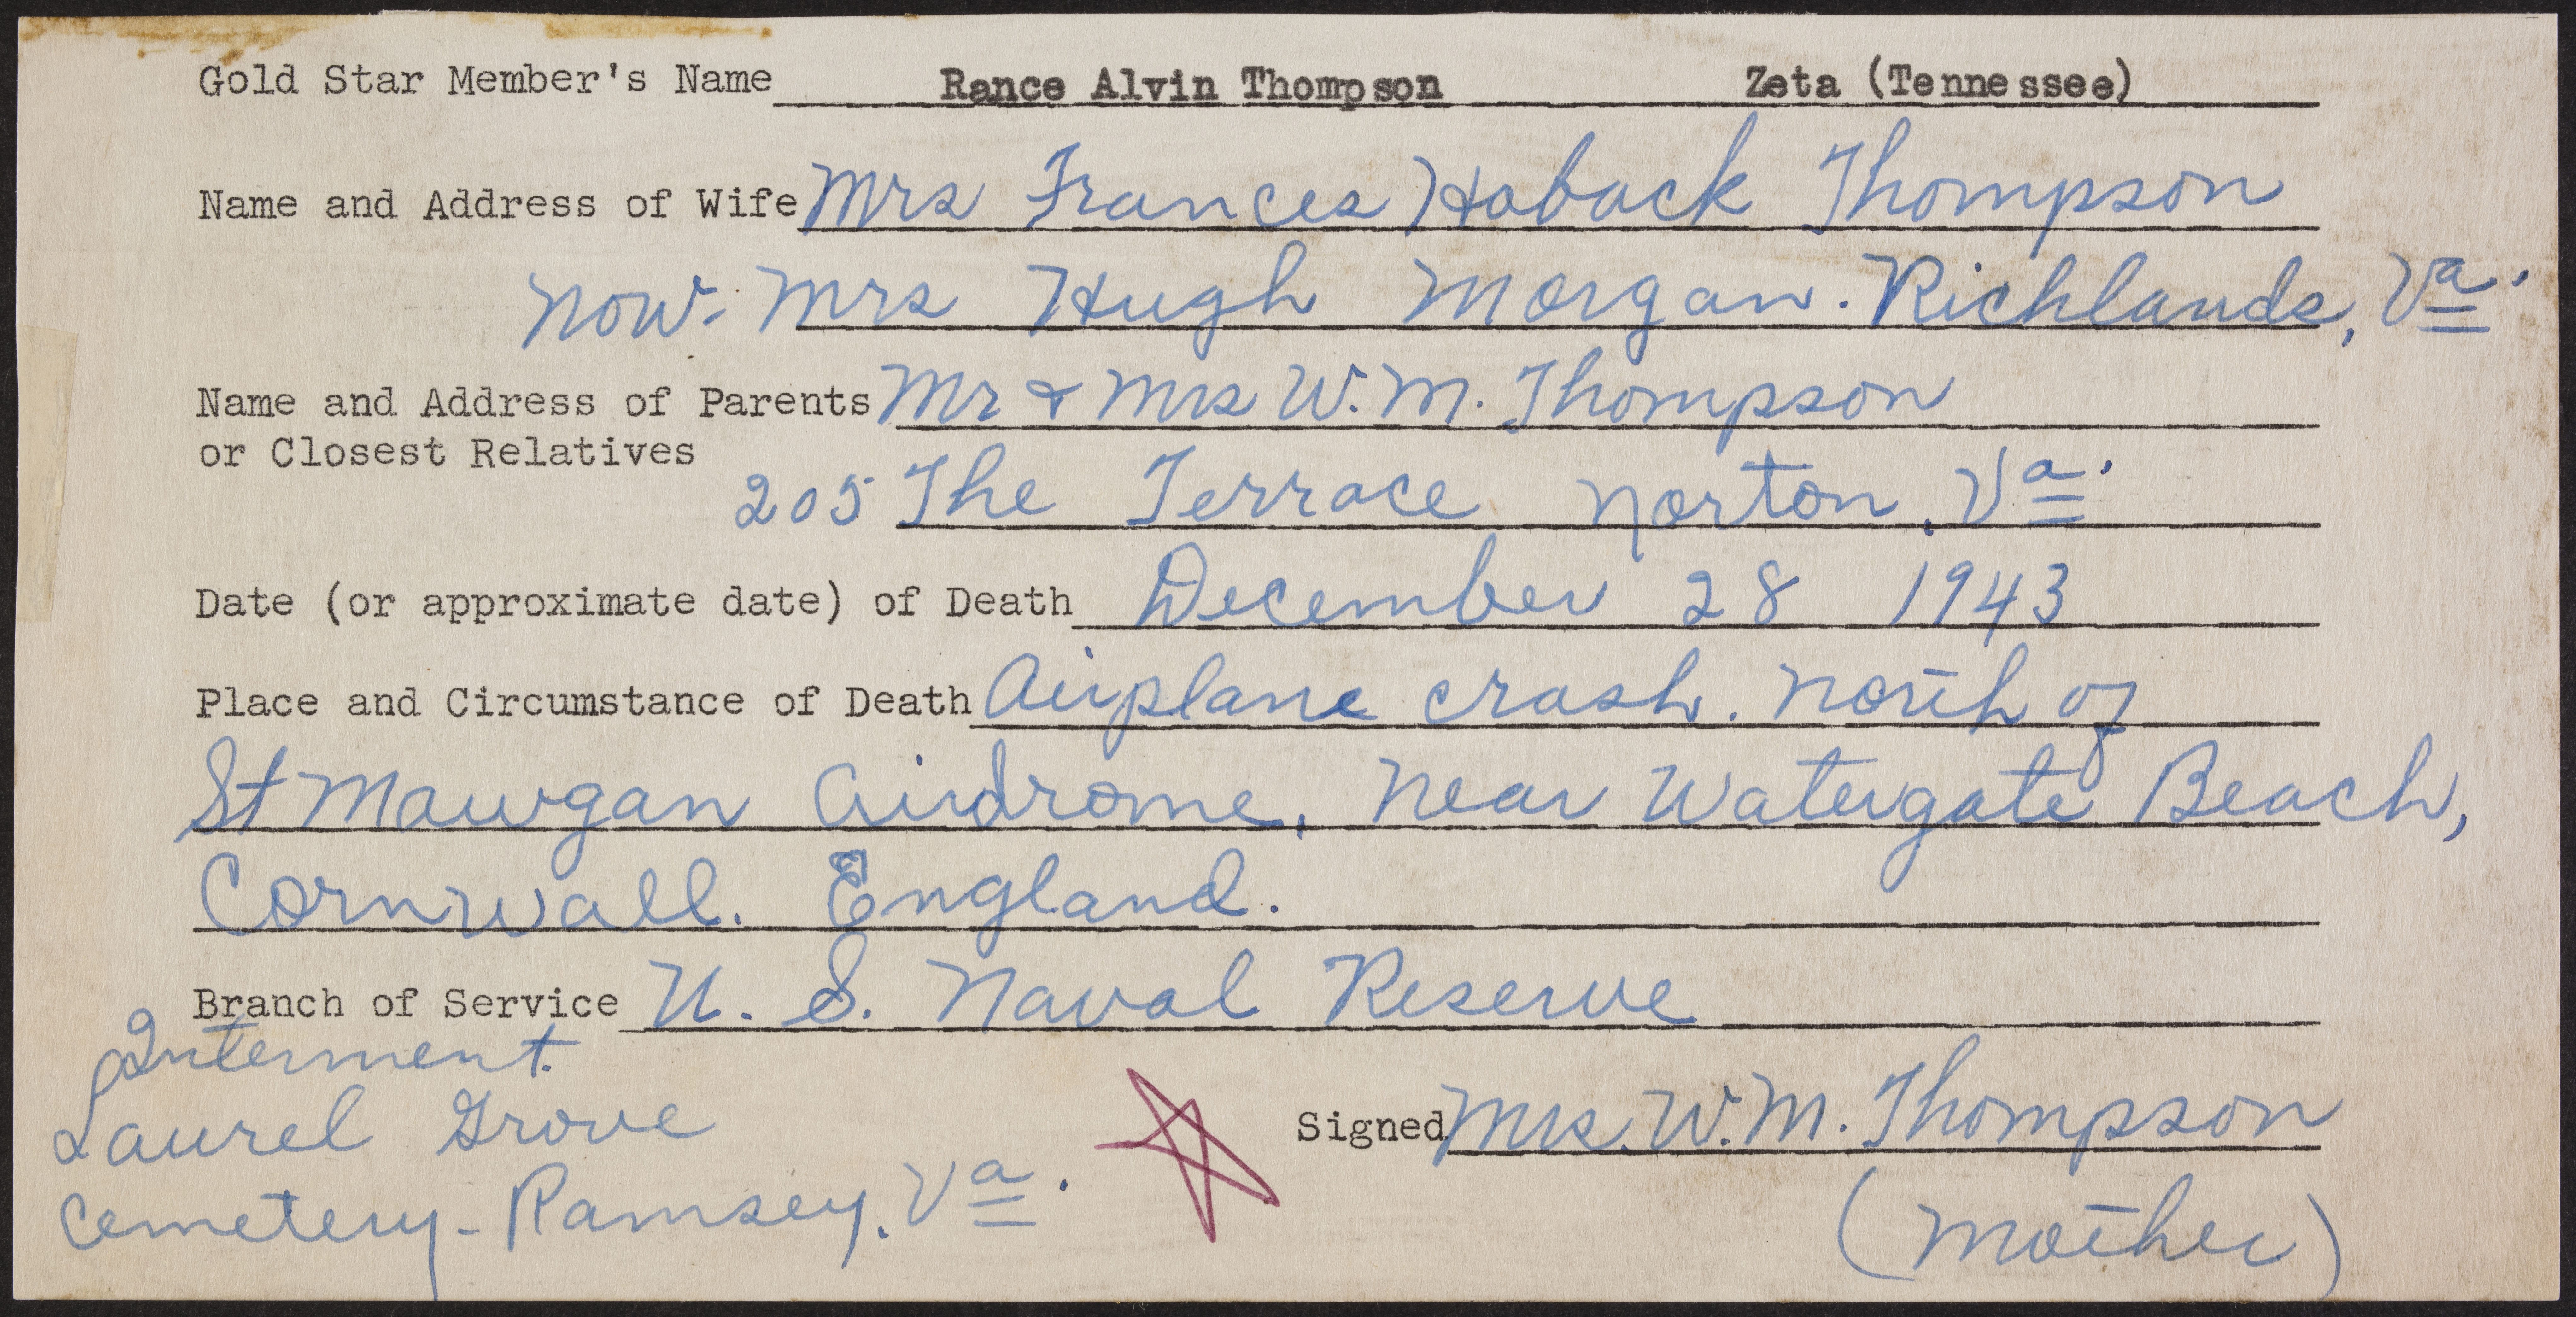 Gold Star Member's Name Rance Alvin Thompson Zeta (Tennessee)
Name and Address of Wife Mrs Frances Hoback Thompson
Now. Mrs Hugh Morgan. Richlands, Va.
Name and Address of Parents Mr & Mrs W. M. Thompson
or Closest Relatives
205 The Terrace Norton, Va.
Date (or approximate date) of Death December 28 1943
Place and Circumstance of Death Airplane crash. North of
St Mawgan Airdrome, Near Watergate Beach,
Cornwall. England.
Branch of Service U. S. Naval Reserve
Interment.
Laurel Grove
Cemetery - Ramsey, Va.
Signed Mrs. W. M. Thompson
(Mother)